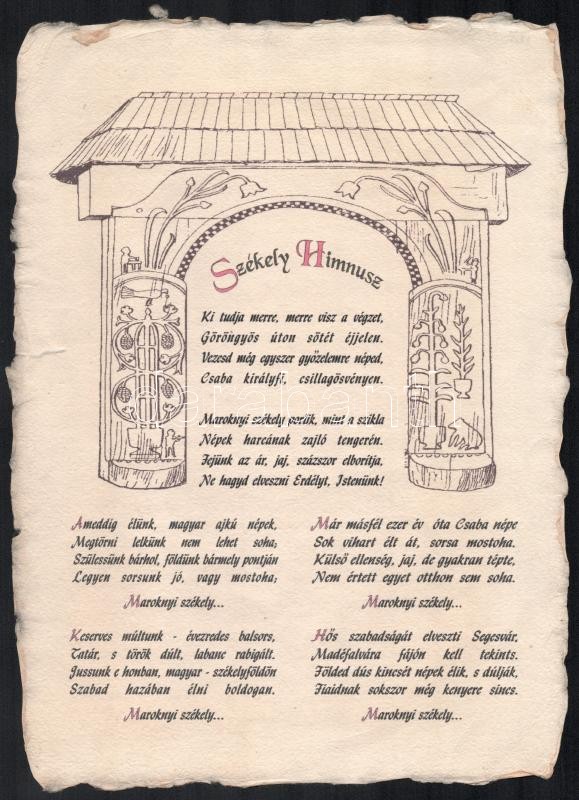 Székely Himnusz
Ki tudja merre, merre visz a végzet,
Göröngyös úton sötét éjjelen.
Vezesd még egyszer győzelemre néped,
Csaba királyfi, csillagösvényen.
Maroknyi székely porlik, mint a szikla
Népek harcának zajló tengerén.
Fejünk az ár, jaj, százszor elborítja,
Ne hagyd elveszni Erdélyt, Istenünk!
Ameddig élünk, magyar ajkú népek,
Megtörni lelkünk nem lehet soha;
Szülessünk bárhol, földünk bármely pontján
Legyen sorsunk jó, vagy mostoha;
Maroknyi székely...
Keserves múltunk - évezredes balsors,
Tatár, s török dúlt, labanc rabigált.
Jussunk e honban, magyar - székelyföldön
Szabad hazában élni boldogan.
Maroknyi székely...
Már másfél ezer év óta Csaba népe
Sok vihart élt át, sorsa mostoha.
Külső ellenség, jaj, de gyakran tépte,
Nem értett egyet otthon sem soha.
Maroknyi székely...
Hős szabadságát elveszti Segesvár,
Mádéfalvára fájón kell tekints.
Földed dús kincsét népek élik, s dúlják,
Fiaidnak sokszor még kenyere sincs.
Maroknyi székely...